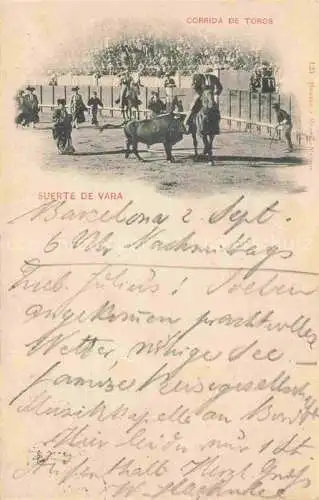 CORRIDA DE TOROS
SUERTE DE VARA
Barcelona 2 Sept.
6 Uhr Nachmittags
Lieb. Julius! Soeben
angekommen prachtvolles
Wetter, ruhige See –
famose Reisegesellschaft
Musikkapelle an Bord
Hier leider nur 1 St
Aufenthalt Herzl Gruß